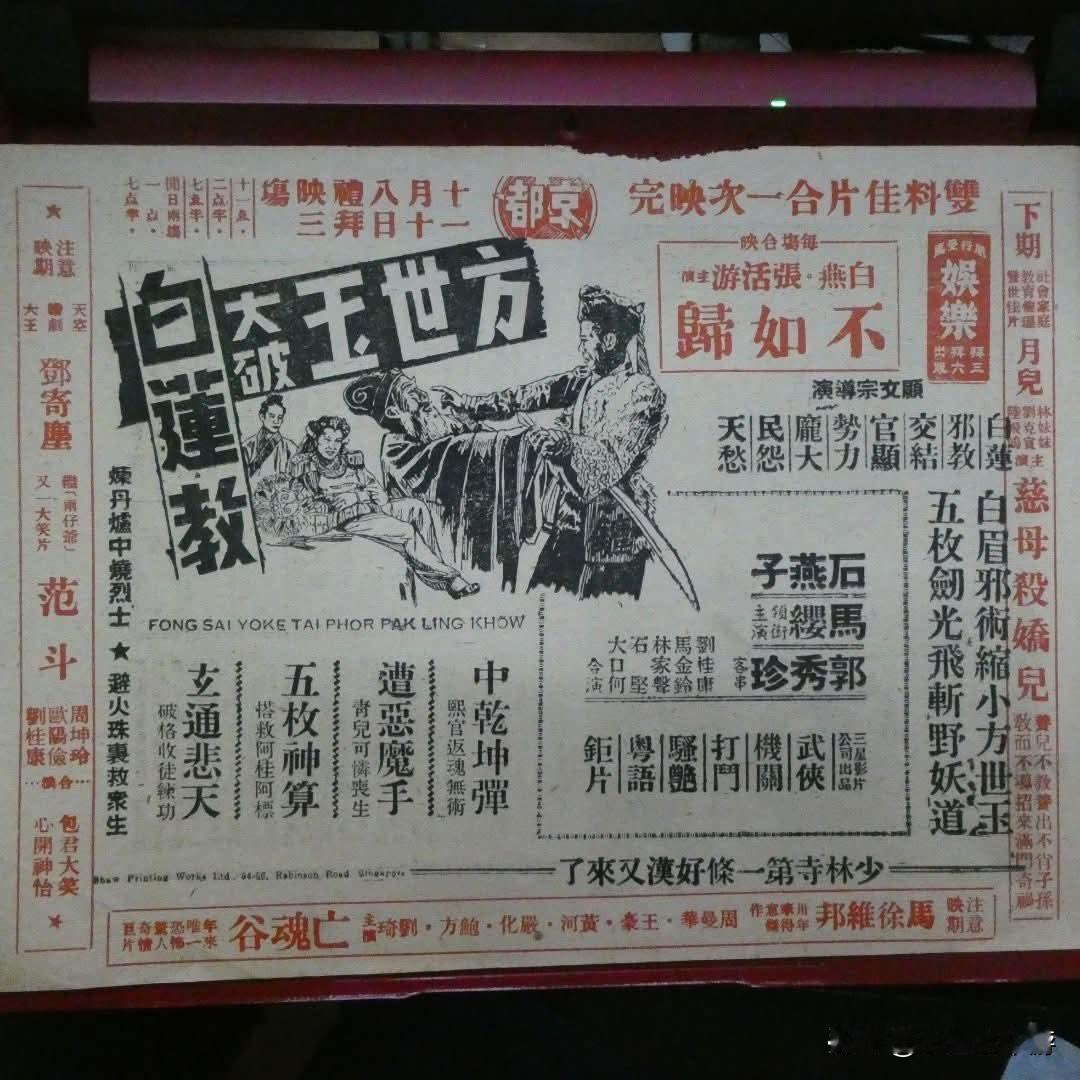 雙料佳片合一次映完
京都
十月八禮映塲
一十日拜三
十一点.
二点半.
七点半.
開日兩塲
一点.
七点半.
每塲合映
白燕・張活游主演
不如歸
娛樂
拜三
拜六
出版
方世玉
大破
白蓮教
顧文宗導演
白蓮邪教
交結官顯
勢力龐大
民怨天愁
白眉邪術縮小方世玉
五枚劍光飛斬野妖道
石燕子
馬纓
領銜主演
郭秀珍
客串
劉桂康
馬金鈴
林家聲
石堅
大口何
合演
三星影片公司出品
武俠
機關
打鬥
騷艷
粵語
鉅片
FONG SAI YOKE TAI PHOR PAK LING KHOW
中乾坤彈
熙官返魂無術
遭惡魔手
青兒可憐喪生
五枚神算
搭救阿桂阿標
玄通悲天
破格收徒練功
煉丹爐中燒烈士★避火珠裏救衆生
少林寺第一條好漢又來了
Shaw Printing Works Ltd. 94-96, Robinson Road Singapore
下期
社會家庭
教育倫理
警世佳片
月兒
林妹妹
劉克宣
陸飛鴻
主演
慈母殺嬌兒
養兒不教養出不肖子孫
教而不導招來滿門奇禍
注意映期
天空諧劇大王
鄧寄塵
繼「兩仔爺」
又一大笑片
范斗
周坤玲
歐陽儉
劉桂康
合演
包君大笑
心開神怡
注意映期
馬徐維邦
周曼華・王豪・黃河・嚴化・鮑方・劉琦主演
亡魂谷
年來唯一恐怖驚人奇情巨片